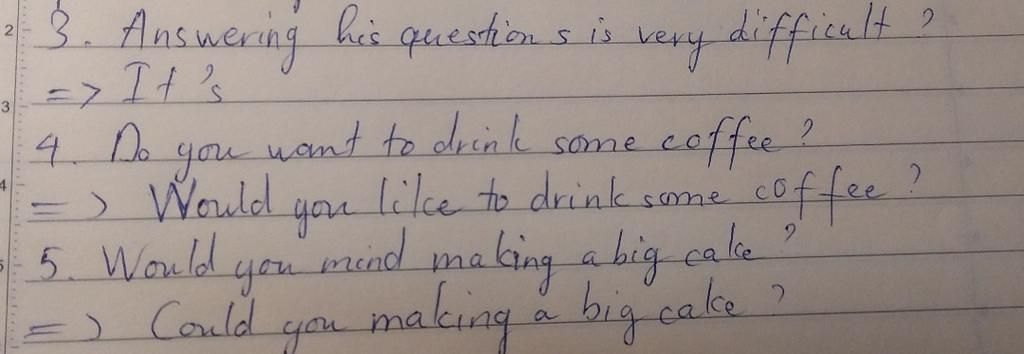 3. Answering his questions is very difficult ?
=> It's
4. Do you want to drink some coffee ?
=> Would you like to drink some coffee ?
5. Would you mind making a big cake ?
=> Could you making a big cake ?